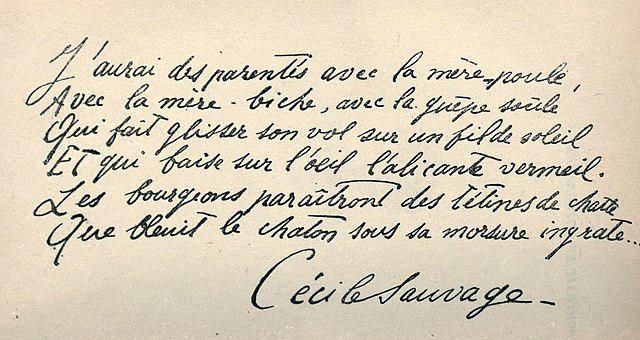 J'aurai des parentés avec la mère-poule,
Avec la mère-biche, avec la guêpe soûle
Qui fait glisser son vol sur un fil de soleil
Et qui baise sur l'œil l'alicante vermeil.
Les bourgeons paraîtront des tétines de chatte
Que bleuit le chaton sous sa morsure ingrate...
Cécile Sauvage -